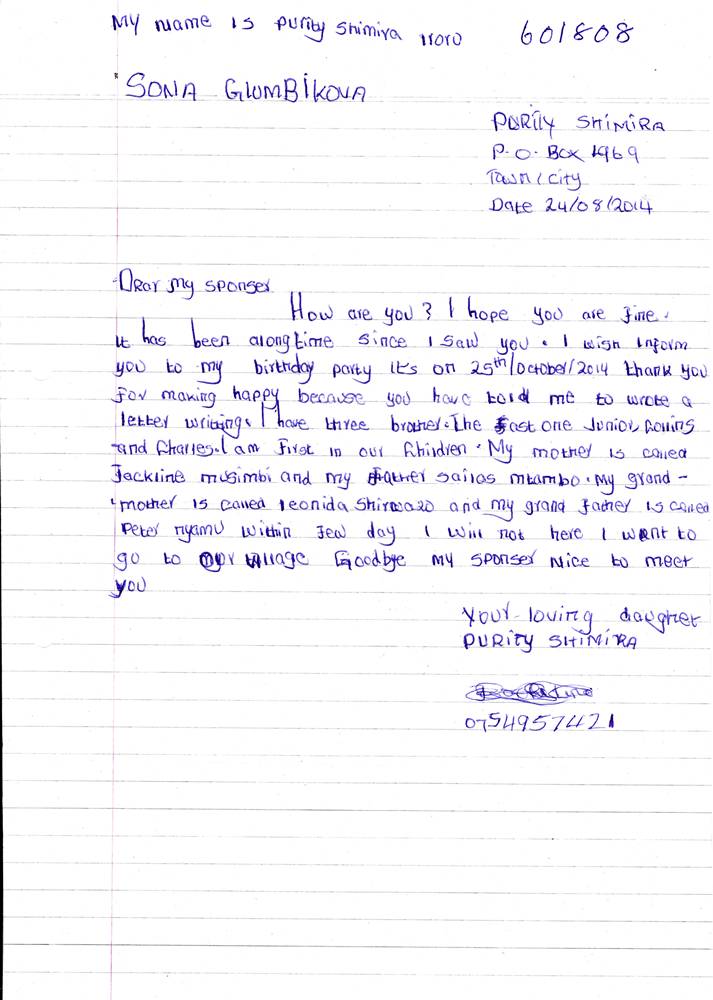 My name is Purity Shimira 601808
SONA GLUMBIKOVA
PURITY SHIMIRA
P.O. Box 1969
Town/City
Date 24/08/2014
Dear my sponser
How are you? I hope you are fine.
it has been alongtime since I saw you. I wish inform
you to my birthday party it's on 25th/October/2014 thank you
for making happy because you have told me to wrote a
letter writing. I have three brother. The fast one Junior, Collins
and Charles. I am first in our Children. My mother is called
Jackline musimbi and my father sailas mtambo. My grand-
mother is called leonida and my grand father is called
Peter nyamu within few day I will not here I want to
go to our village Goodbye my sponser Nice to meet
you
Your loving daugher
PURITY SHIMIRA
0754957421